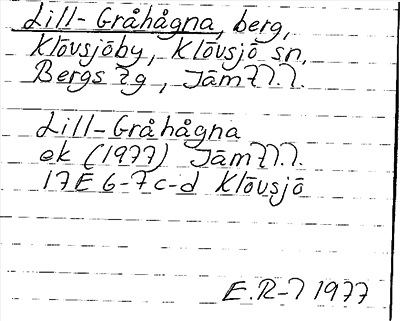 Lill-Gråhågna, berg,
Klövsjöby, Klövsjö sn,
Bergs tg, Jämtl.
Lill-Gråhågna
ek (1977) Jämtl.
17E 6-7c-d Klövsjö
E.R-l 1977